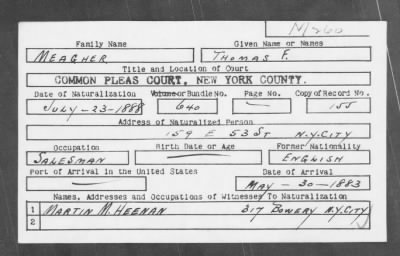 M260
Family Name Given Name or Names
MEAGHER THOMAS F.
Title and Location of Court
COMMON PLEAS COURT, NEW YORK COUNTY.
Date of Naturalization Volume or Bundle No. Page No. Copy of Record No.
JULY-23-1888 640 — 155
Address of Naturalized Person
159 E 53 ST N.Y.CITY
Occupation Birth Date or Age Former Nationality
SALESMAN — ENGLISH
Port of Arrival in the United States Date of Arrival
— MAY-30-1883
Names, Addresses and Occupations of Witnesses To Naturalization
1 MARTIN M. HEENAN 317 BOWERY N.Y.CITY
2